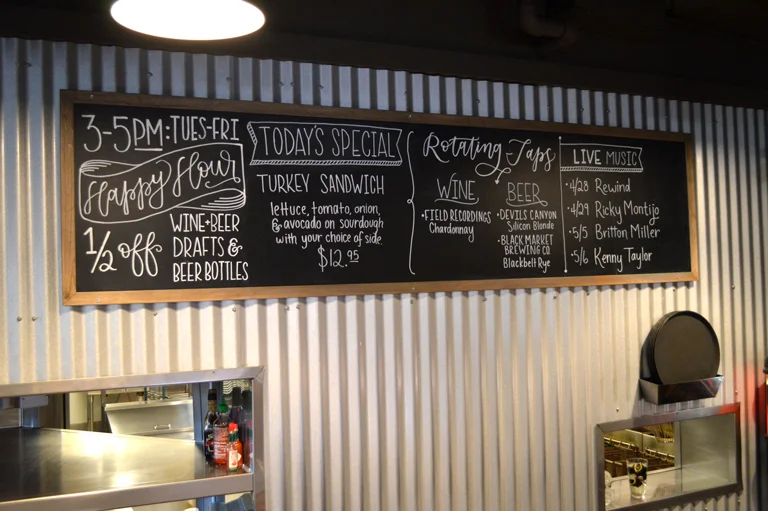 3-5PM: TUES-FRI
Happy Hour
1/2 off
WINE+BEER
DRAFTS &
BEER BOTTLES
TODAY'S SPECIAL
TURKEY SANDWICH
lettuce, tomato, onion,
& avocado on sourdough
with your choice of side
$12.95
Rotating Taps
WINE
•FIELD RECORDINGS
Chardonnay
BEER
•DEVILS CANYON
Silicon Blonde
•BLACK MARKET
BREWING CO.
Blackbelt Rye
LIVE MUSIC
•4/28 Rewind
•4/29 Ricky Montijo
•5/5 Britton Miller
•5/6 Kenny Taylor